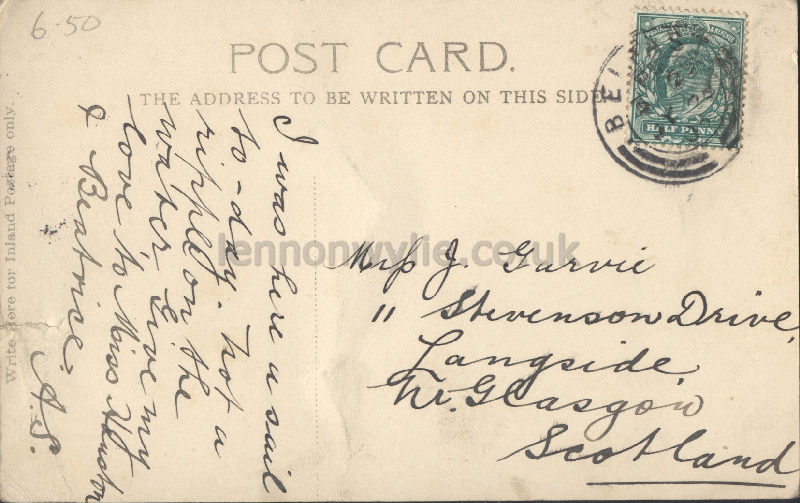 6-50
POST CARD.
THE ADDRESS TO BE WRITTEN ON THIS SIDE.
Write Here for Inland Postage only.
HALF PENNY
BELFAST
I was here a sail
to-day. not a
ripple on the
water Give my
love to Miss Houston
& Beatrice.
A.S.
lennonwylie.co.uk
Miss J. Garvie
11 Stevenson Drive,
Langside,
Nr. Glasgow
Scotland